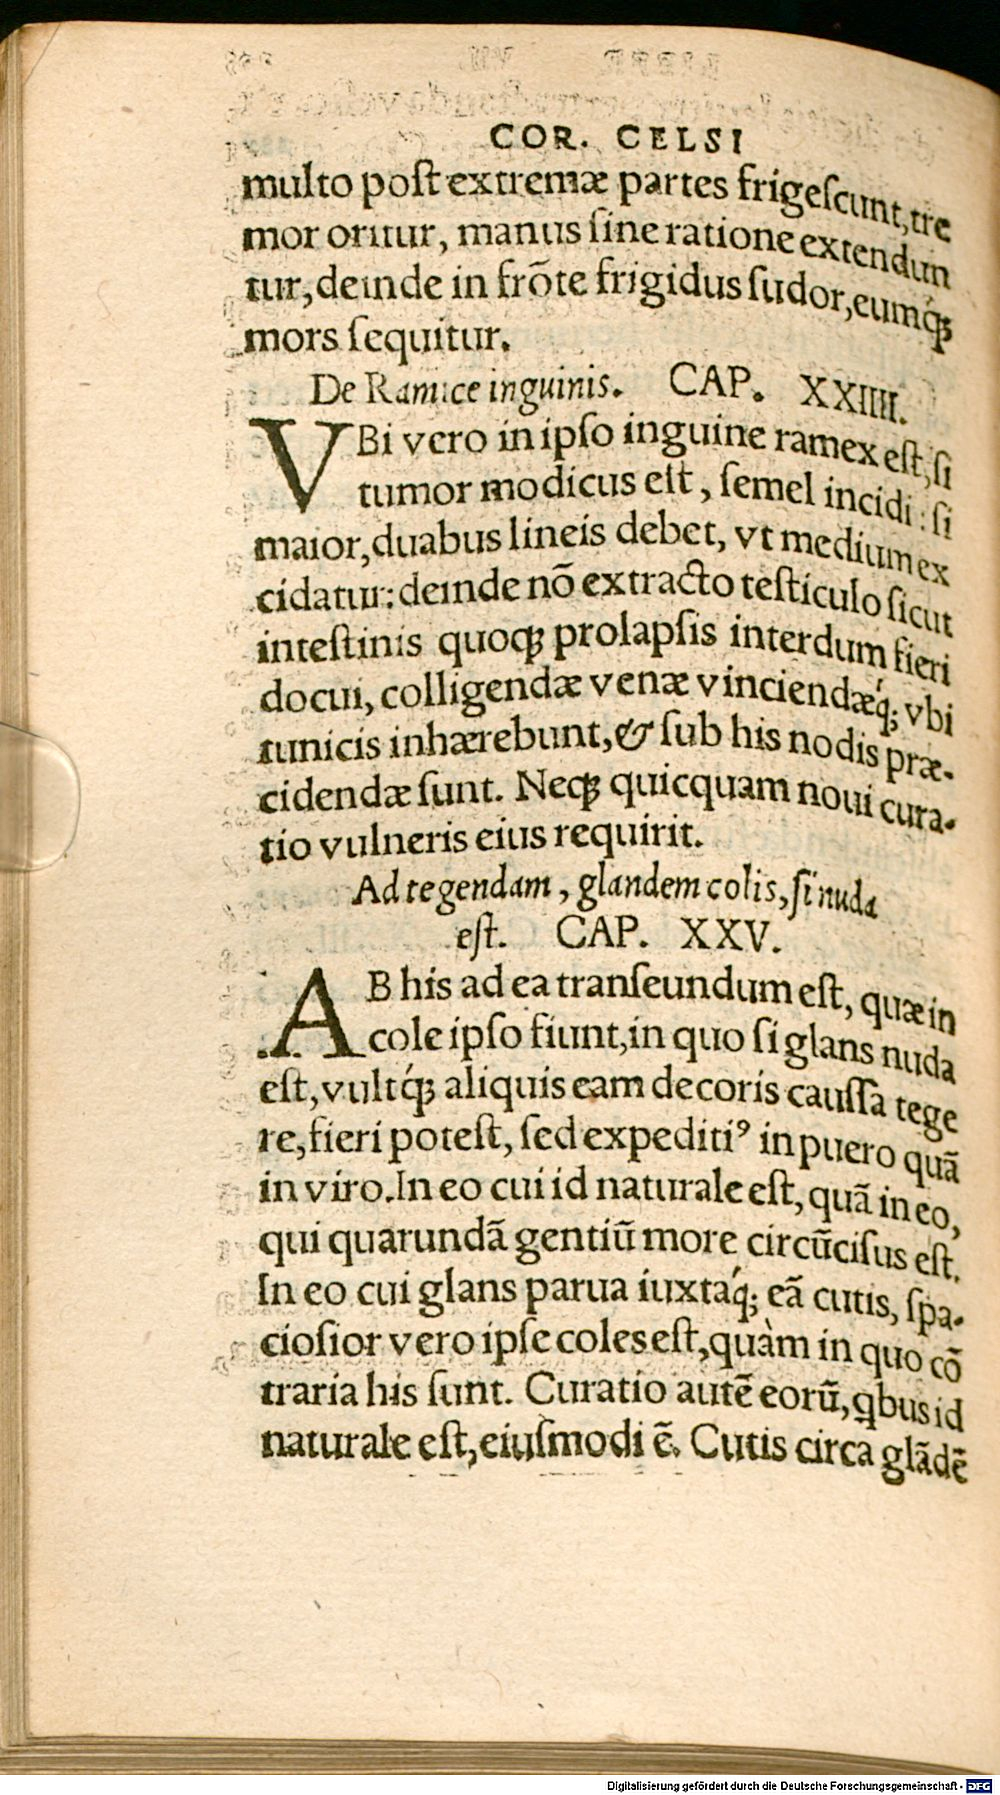 COR. CELSI
multo poſt extremæ partes frigeſcunt, tre
mor oritur, manus ſine ratione extendun
tur, deinde in frōte frigidus ſudor, eumq́ꝫ
mors ſequitur.
De Ramice inguinis. CAP. XXIIII.
VBi vero in ipſo inguine ramex eſt, ſi
tumor modicus eſt, ſemel incidi: ſi
maior, duabus lineis debet, vt medium ex
cidatur: deinde nō extracto teſticulo ſicut
inteſtinis quoqꝫ prolapſis interdum fieri
docui, colligendæ venæ vinciendæq́; vbi
tunicis inhærebunt, & ſub his nodis præ-
cidendæ ſunt. Neqꝫ quicquam noui cura-
tio vulneris eius requirit.
Ad tegendam, glandem colis, ſi nuda
eſt. CAP. XXV.
AB his ad ea tranſeundum eſt, quæ in
cole ipſo fiunt, in quo ſi glans nuda
eſt, vultq́ꝫ aliquis eam decoris cauſſa tege
re, fieri poteſt, ſed expeditiꝰ in puero quā
in viro. In eo cui id naturale eſt, quā in eo,
qui quarundā gentiū more circūciſus eſt.
In eo cui glans parua iuxtaq́; eā cutis, ſpa-
cioſior vero ipſe coles eſt, quàm in quo cō
traria his ſunt. Curatio autē eorū, ꝗbus id
naturale eſt, eiuſmodi ē. Cutis circa glādē
Digitalisierung gefördert durch die Deutsche Forschungsgemeinschaft - DFG